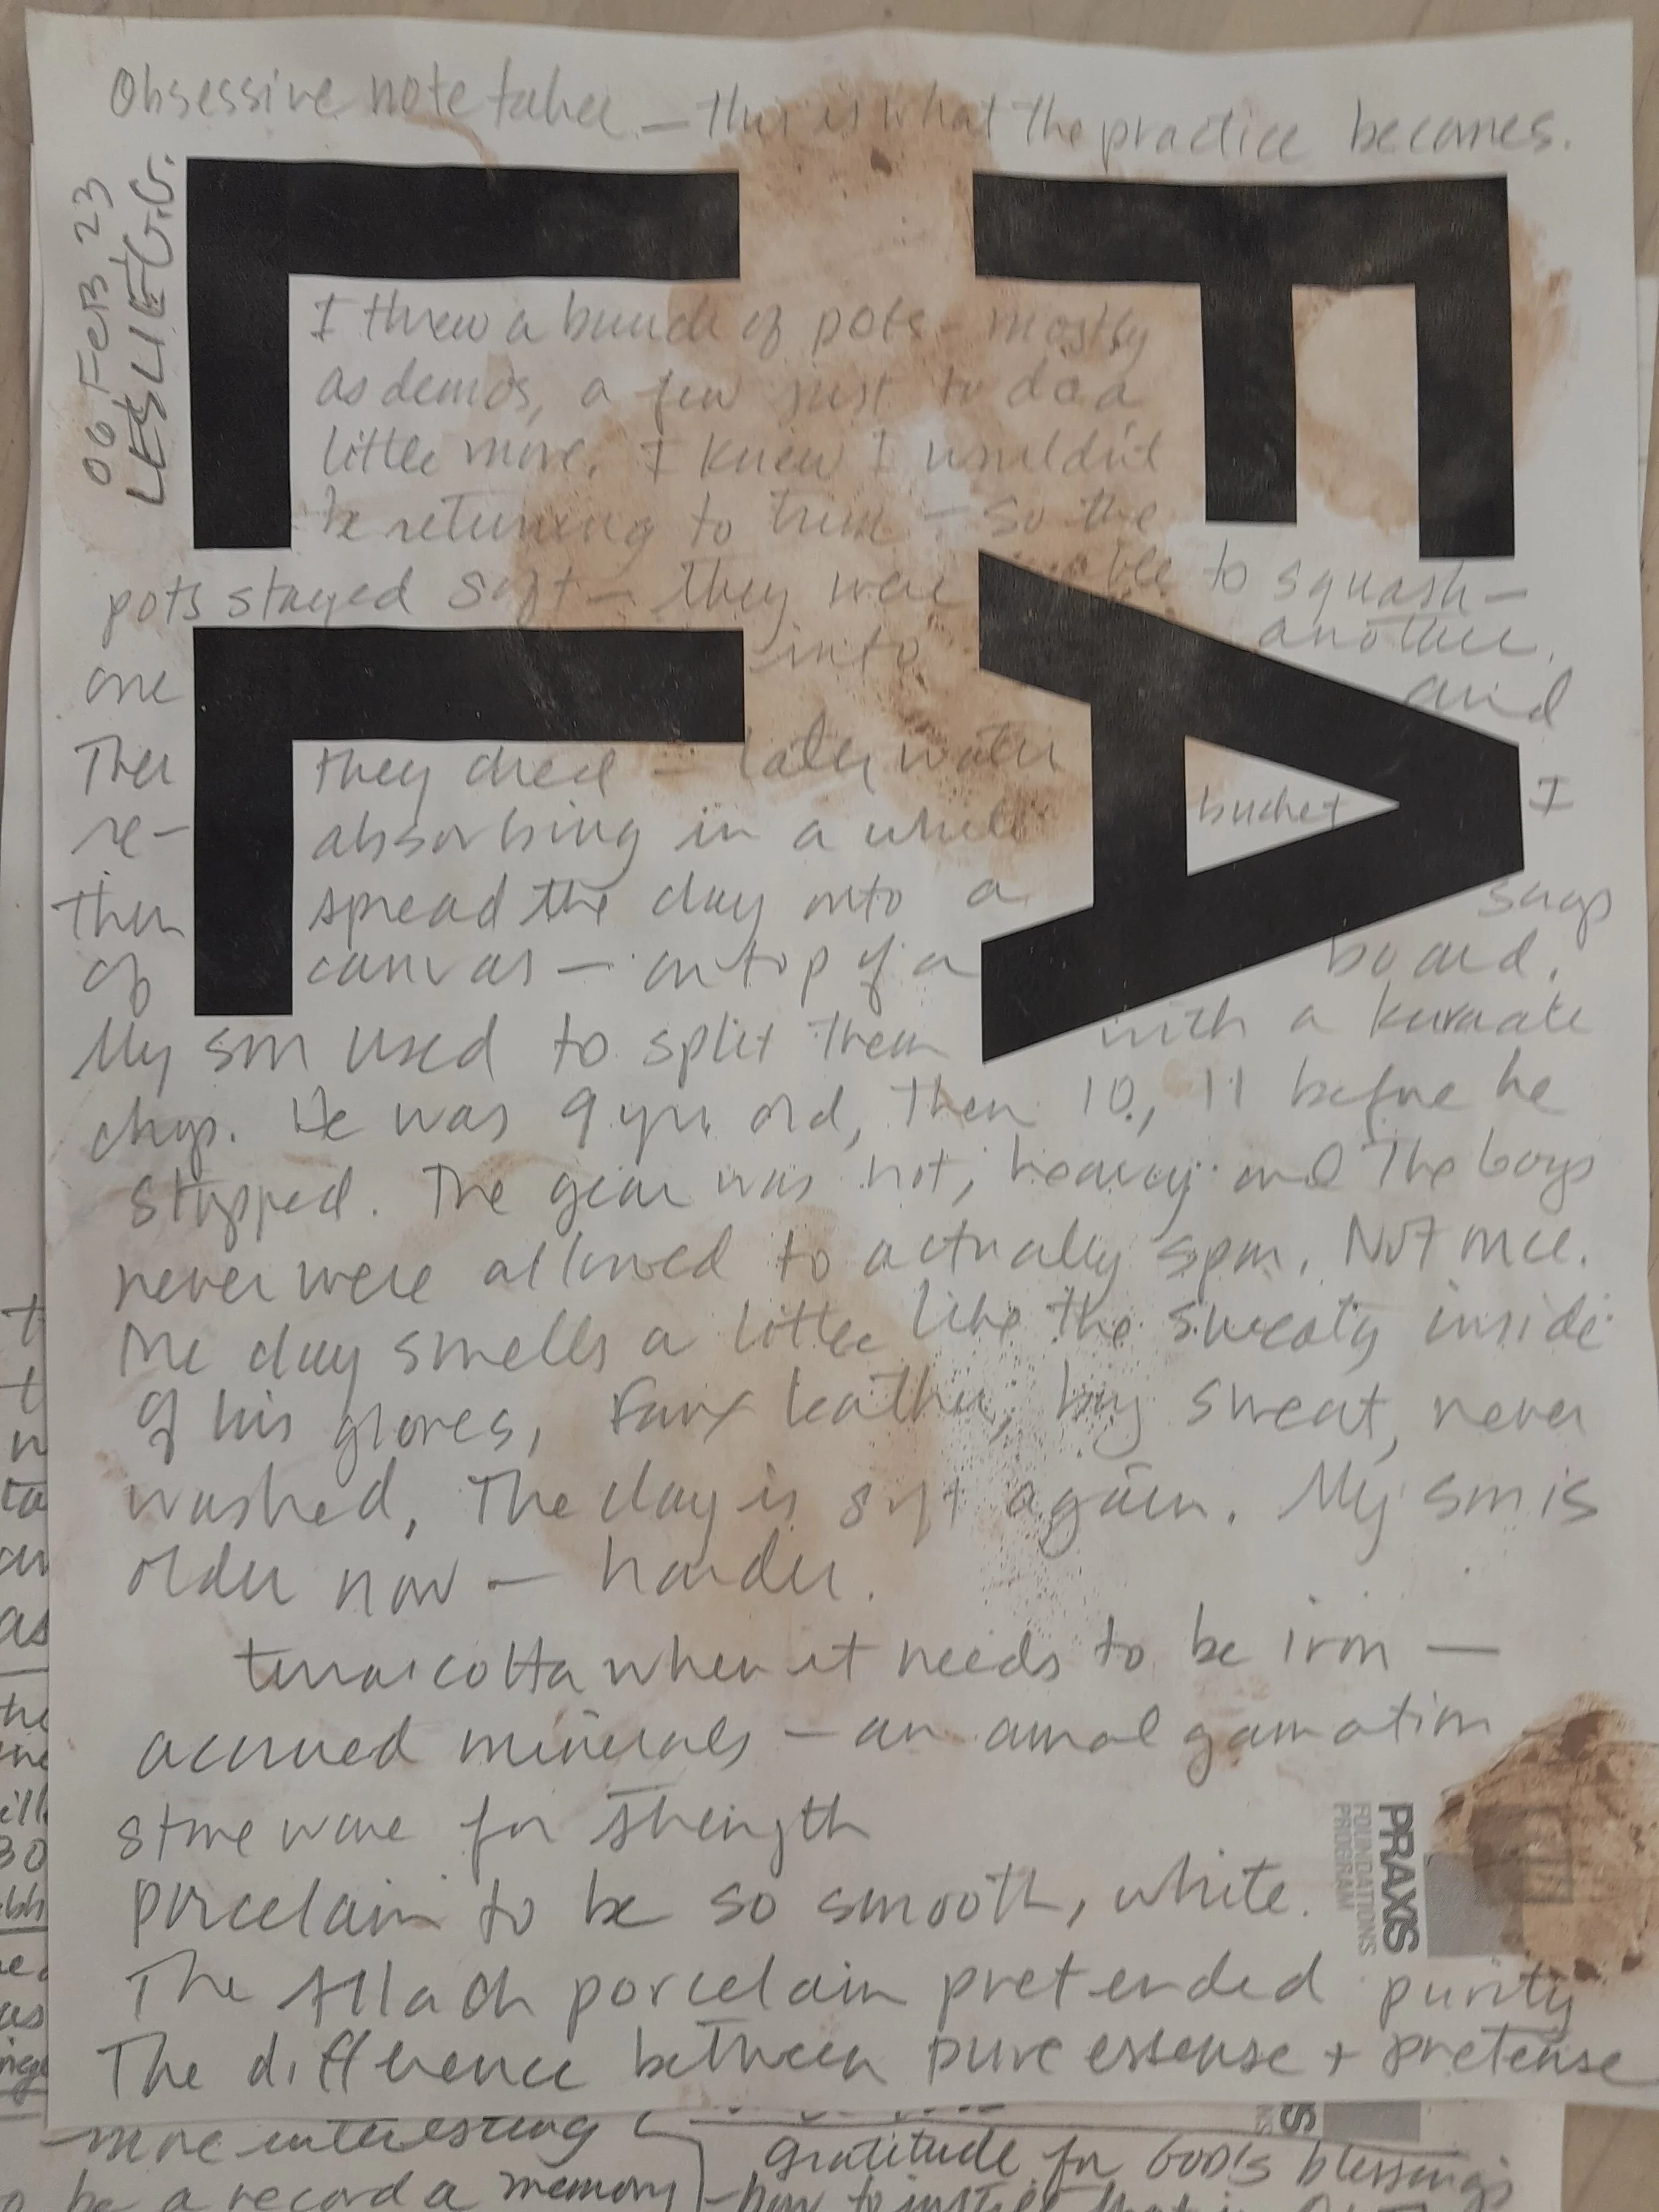 Obsessive note taker — this is what the practice becomes.
06 FEB 23
LESLIE G.G.
EA
LL
I threw a bunch of pots - mostly
as demos, a few just to do a
little more. I knew I wouldn't
be returning to trim - so the
pots stayed soft - they were able to squash -
one into another.
Then they dried - later water and
re- absorbing in a white bucket I
then spread the clay onto a
of canvas - on top of a board.
My son used to split them with a karate
chop. He was 9 yrs old, then 10, 11 before he
stopped. The gear was hot, heavy and the boys
never were allowed to actually spar. Not once.
The clay smells a little like the sweaty inside
of his gloves, faux leather, boy sweat, never
washed, The clay is soft again. My son is
older now — harder.
terracotta when it needs to be iron —
accrued minerals - an amalgamation
stoneware for strength
porcelain to be so smooth, white.
The Allach porcelain pretended purity
The difference between pure essense + pretense
PRAXIS
FOUNDATIONS
PROGRAM
more interesting
be a record a memory
gratitude for GOD's blessings